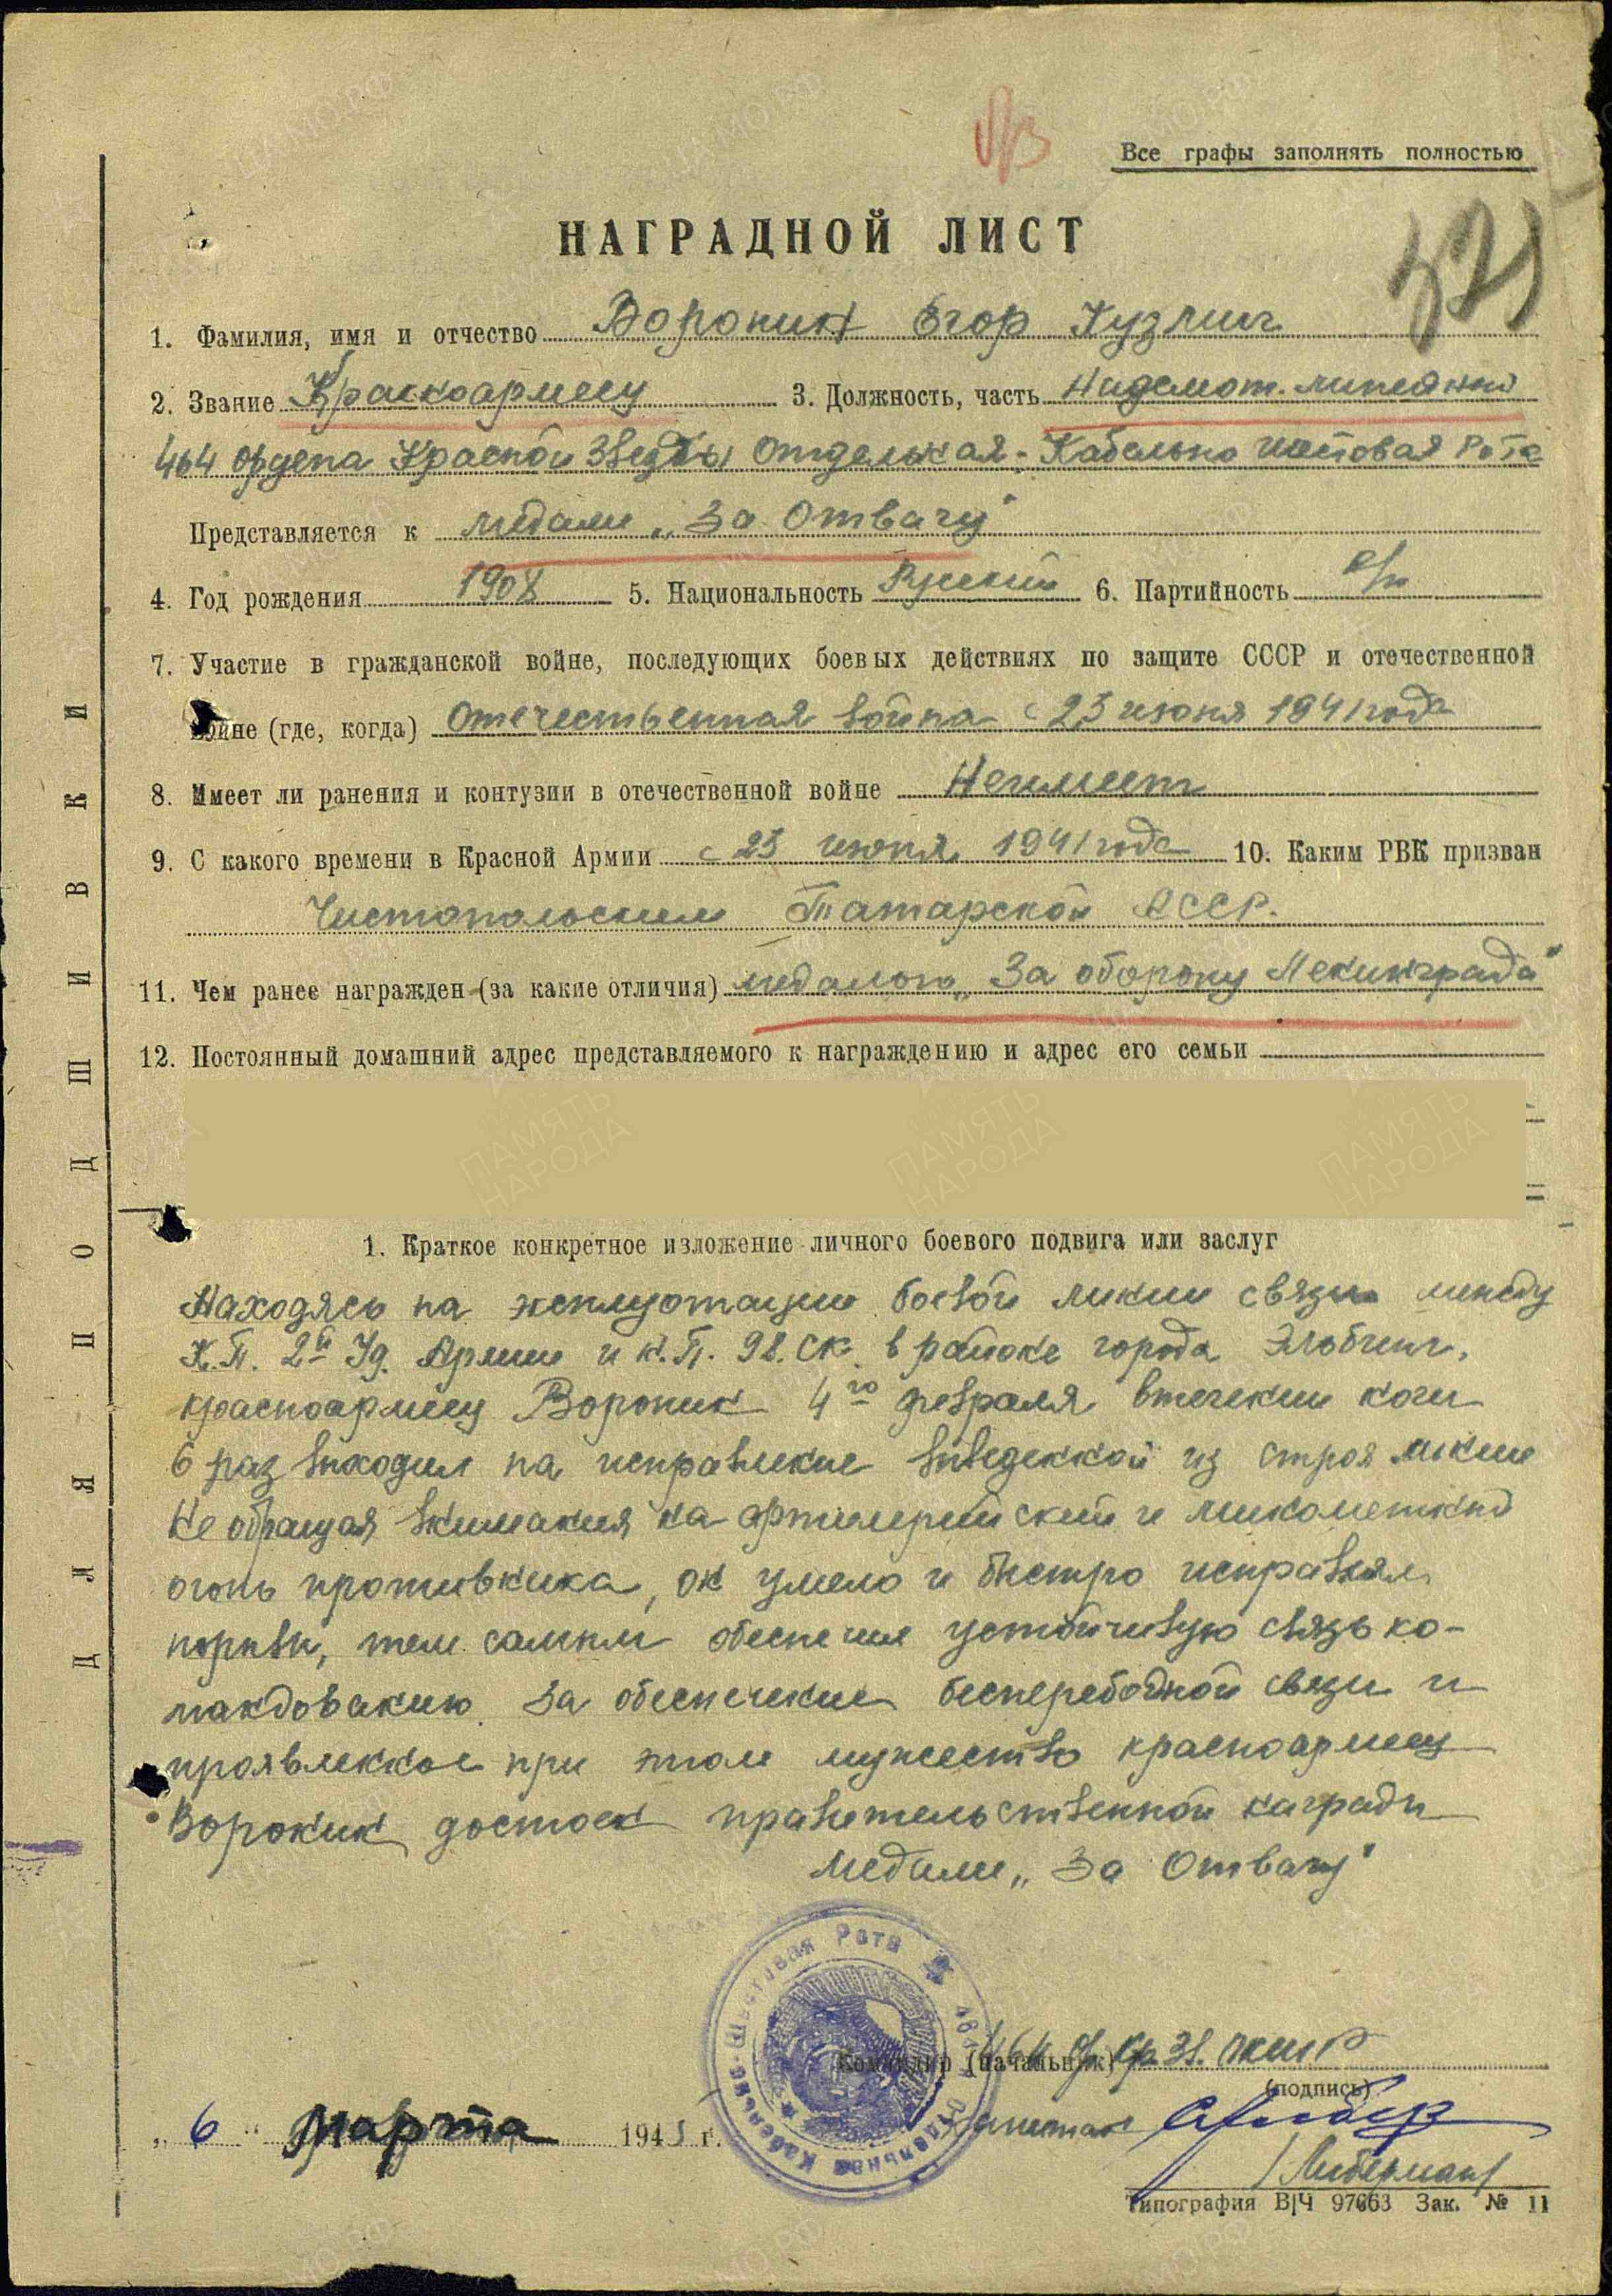 Все графы заполнять полностью
НАГРАДНОЙ ЛИСТ
1. Фамилия, имя и отчество Воронин Егор Кузмич
2. Звание Красноармеец 3. Должность, часть Надсмот. линейный
464 ордена Красной Звезды Отдельная Кабельно шестовая Рота
Представляется к медали „За Отвагу"
4. Год рождения 1908 5. Национальность Русский 6. Партийность б/п
7. Участие в гражданской войне, последующих боевых действиях по защите СССР и отечественной
войне (где, когда) Отечественная война с 23 июня 1941 года
8. Имеет ли ранения и контузии в отечественной войне Не имеет
9. С какого времени в Красной Армии с 23 июня 1941 года 10. Каким РВК призван
Чистопольским Татарской АССР.
11. Чем ранее награжден (за какие отличия) медалью „За оборону Ленинграда"
12. Постоянный домашний адрес представляемого к награждению и адрес его семьи
ПАМЯТЬ НАРОДА ПАМЯТЬ НАРОДА ПАМЯТЬ НАРОДА
1. Краткое конкретное изложение личного боевого подвига или заслуг
Находясь на эксплуотации боевой линии связи между
К.П. 2й Уд. Армии и К.П. 98.СК. в районе города Эльбинг,
красноармеец Воронин 4го февраля втечении ночи
6 раз выходил на исправление выведенной из строя линии
Не обращая внимания на артилерийский и минометный
огонь противника, он умело и быстро исправлял
порывы, тем самым обеспечил устойчивую связь ко-
мандованию. За обеспечение бесперебойной связи и
проявленное при этом мужество красноармеец
Воронин достоен правительственной награды
медали „За Отвагу"
Командир (начальник) 464 О. Кр. Зв. ОКШР
(подпись)
„6" Марта 1945 г.
Капитан
/Либерман/
Отдельная Кабельно-Шестовая Рота
Типография В|Ч 97663 Зак. № 11
ДЛЯ ПОДШИВКИ